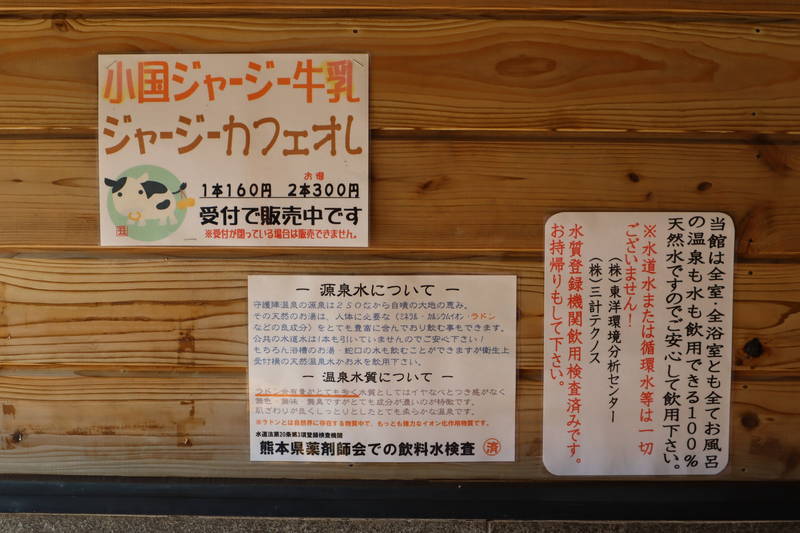 小国ジャージー牛乳
ジャージーカフェオレ
お得
1本160円 2本300円
受付で販売中です
※受付が閉っている場合は販売できません。
ー 源泉水について ー
守護陣温泉の源泉は250mから自噴の大地の恵み。
その天然のお湯は、人体に必要な(ミネラル・カルシウムイオン・ラドン
などの良成分)をとても豊富に含んでおり飲む事もできます。
公共の水道水は1本も引いていませんのでご安心下さい!
もちろん浴槽のお湯・蛇口の水も飲むことができますが衛生上
受付横の天然温泉水かお水を飲用下さい。
ー温泉水質についてー
ラドン含有量がとても多く水質としてはイヤなべとつき感がなく
無色 無味 無臭ですがとても成分が濃いのが特徴です。
肌ざわりが良くしっとりとしたとても柔らかな温泉です。
※ラドンとは自然界に存在する物質中で、もっとも強力なイオン化作用物質です。
水道法第20条第3項登録検査機関
熊本県薬剤師会での飲料水検査 済
当館は全室・全浴室とも全てお風呂
の温泉も水も飲用できる100%
天然水ですのでご安心して飲用下さい。
※水道水または循環水等は一切
ございません!
(株)東洋環境分析センター
(株)三計テクノス
水質登録機関飲用検査済みです。
お持帰りもして下さい。